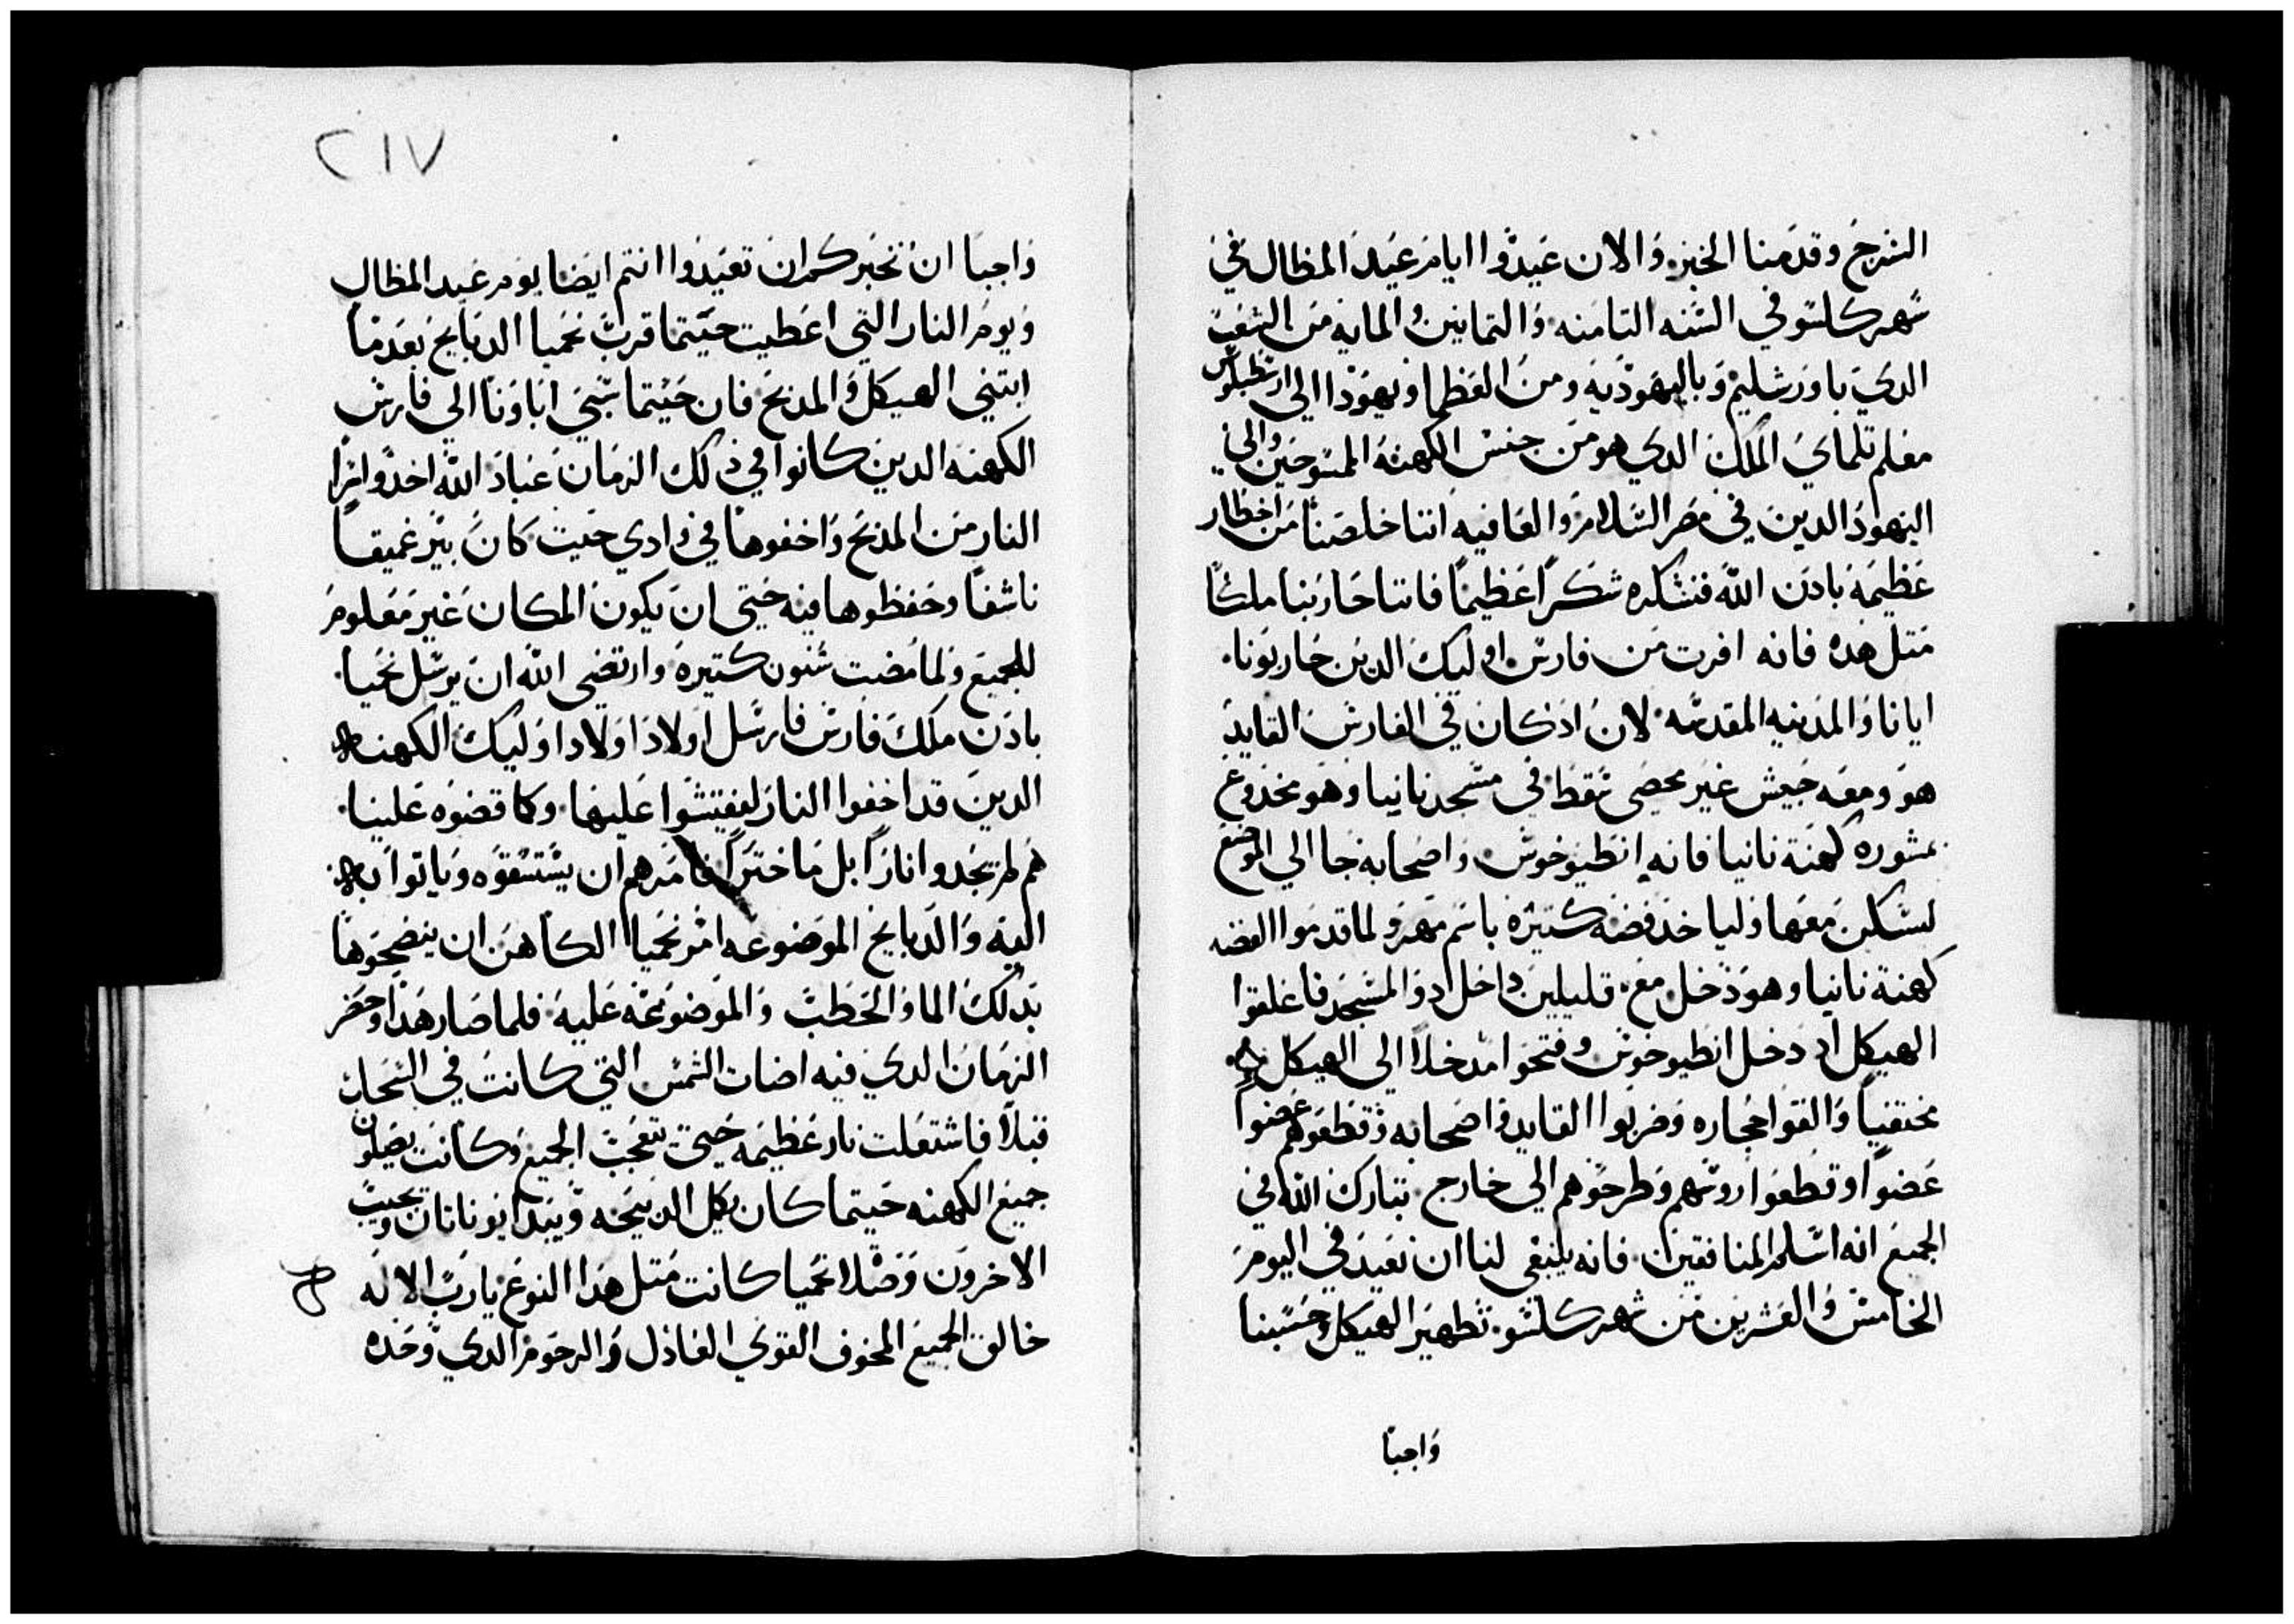 السرج وقدمنا الخبز والان عيدوا ايام عيد المظال في
شهر كلسو في السنه التامنه والتمانين والمايه من الشعب
الدي باورشليم وباليهوديه ومن العظما ويهودا الي ارسطبلوس
معلم تلماي الملك الدي هو من جنس الكهنه الممسوحين والي
اليهود الدين في مصر السلام والعافيه اننا خلصنا من اخطار
عظيمه بادن الله فنشكره شكرا عظيما فاننا حاربنا ملكا
متل هده فانه افرت من فارس اوليك الدين حاربونا
ايانا والمدينه المقدسه لان اد كان في الفارس القايد
هو ومعه جيش غير محصي سقط في مسجد نانيا وهو مخدوع
بمشوره كهنة نانيا فانه انطيوخوس واصحابه جا الي الموضع
لسكن معها ولياخد فضه كتيره باسم مهر ولما قدموا الفضه
كهنة نانيا وهو دخل مع قليلين داخل دو المسجد فاغلقوا
الهيكل اد دخل انطيوخوس وفتحوا مدخلا الي الهيكل
مختفيا والقوا حجاره وضربوا القايد واصحابه وقطعوهم عضوا
عضوا وقطعوا روسهم وطرحوهم الي خارج تبارك الله في
الجميع انه اسلم المنافقين فانه ينبغي لنا ان نعيد في اليوم
الخامس والعشرين من شهر كلسو تطهير الهيكل وحسبنا
واجبا
٢١٧
واجبا ان نخبركم ان تعيدوا انتم ايضا يوم عيد المظال
ويوم النار التي اعطيت حيتما قرب نحميا الدبايح بعد ما
ابتني الهيكل والمدبح فان حيتما سبي اباونا الي فارس
الكهنه الدين كانوا في دلك الزمان عباد الله اخدوا سرا
النار من المدبح واخفوها في وادي حيت كان بير عميقا
ناشفا وحفظوها فيه حتي ان يكون المكان غير معلوم
للجميع ولما مضت سنون كتيره وارتضي الله ان يرسل نحميا
بادن ملك فارس فارسل اولاد اولاد اوليك الكهنه
الدين قد اخفوا النار ليفتشوا عليها وكما قصوه علينا
هم لم يجدوا نارا بل ما ختراً فامرهم ان يستسقوه وياتوا به
اليه والدبايح الموضوعه امر نحميا الكاهن ان ينضحوها
بدلك الما والحطب والموضوعه عليه فلما صار هدا وحضر
الزمان الدي فيه اضات الشمس التي كانت في السحاب
قبلا فاشتعلت نار عظيمه حتي تعجب الجميع وكانت يصلون
جميع الكهنه حيتما كان يكل الدبيحه ويبدا يوناتان ويجيب
الاخرون وصلاة نحميا كانت متل هدا النوع يا رب الاله
خالق الجميع المخوف القوي العادل والرحوم الدي وحده